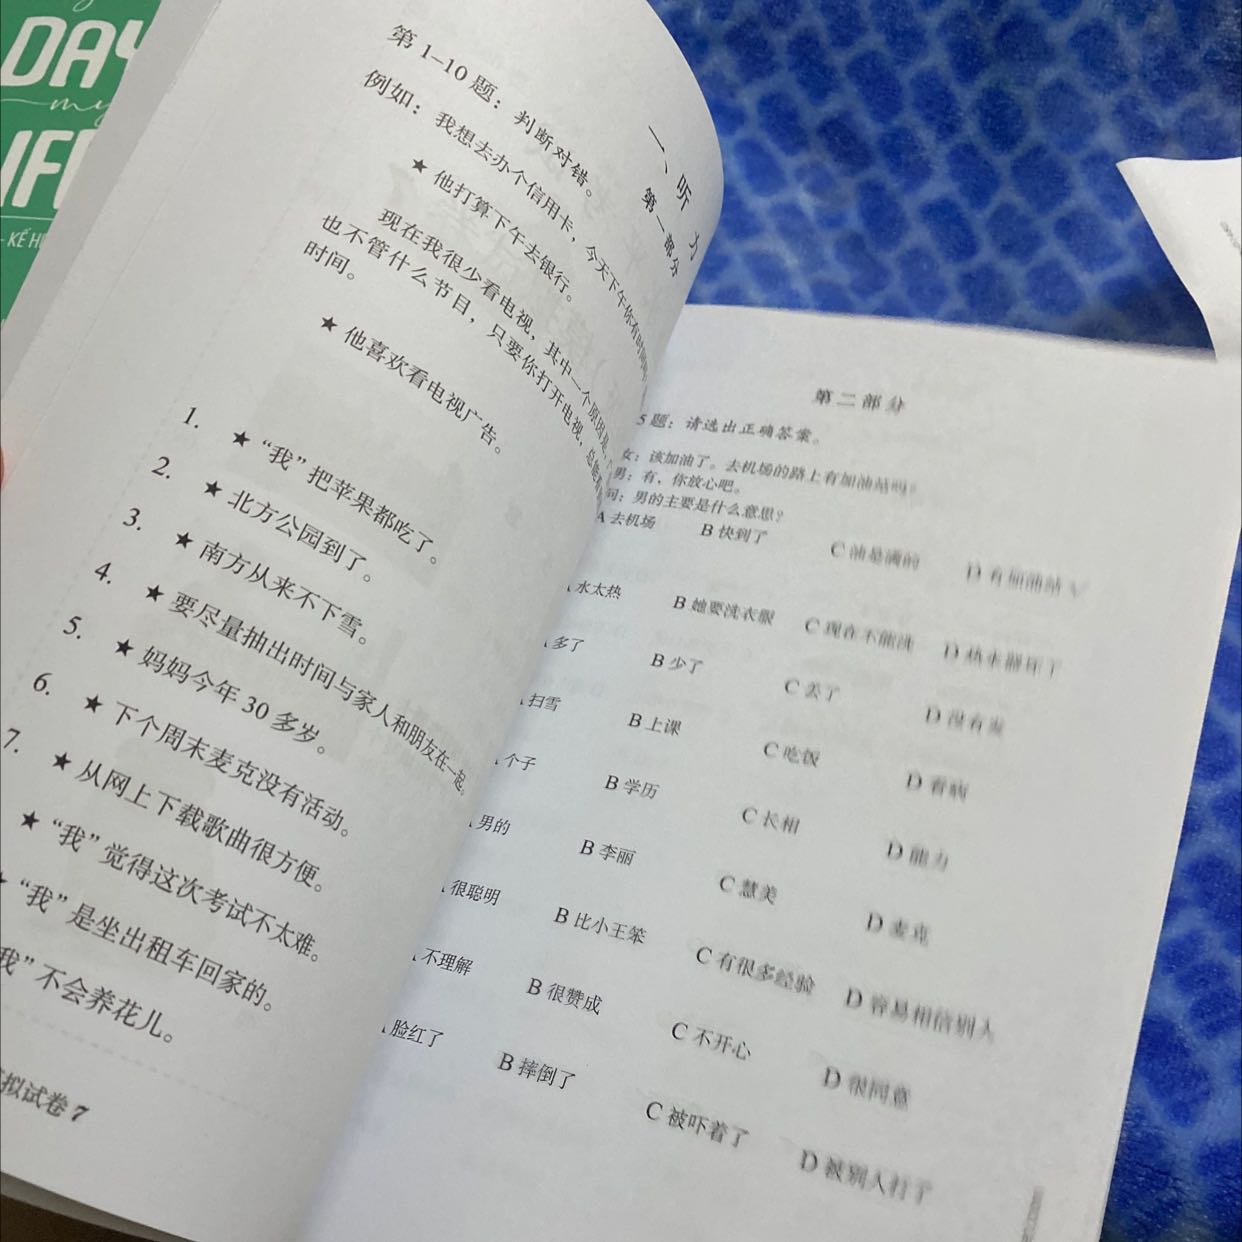 DAY
my
LIFE
一、听 力
第一部分
第 1–10 题：判断对错。
例如：我想去办个信用卡，今天下午你有时间吗
★ 他打算下午去银行。
现在我很少看电视，其中一个原因是，
也不管什么节目，只要你打开电视，总能看
时间。
★ 他喜欢看电视广告。
1. ★ “我”把苹果都吃了。
2. ★ 北方公园到了。
3. ★ 南方从来不下雪。
4. ★ 要尽量抽出时间与家人和朋友在一起。
5. ★ 妈妈今年 30 多岁。
6. ★ 下个周末麦克没有活动。
7. ★ 从网上下载歌曲很方便。
★ “我”觉得这次考试不太难。
★ “我”是坐出租车回家的。
我”不会养花儿。
拟试卷 7
第二部分
5 题：请选出正确答案。
女：该加油了。去机场的路上有加油站吗？
男：有，你放心吧。
问：男的主要是什么意思？
A 去机场 B 快到了 C 油是满的 D 有加油站 √
水太热 B 她要洗衣服 C 现在不能洗 D 热水器坏了
多了 B 少了 C 丢了 D 没有变
扫雪 B 上课 C 吃饭 D 看病
个子 B 学历 C 长相 D 能力
男的 B 李丽 C 慧美 D 麦克
很聪明 B 比小王笨 C 有很多经验 D 容易相信别人
不理解 B 很赞成 C 不开心 D 很同意
脸红了 B 摔倒了 C 被吓着了 D 被别人打了